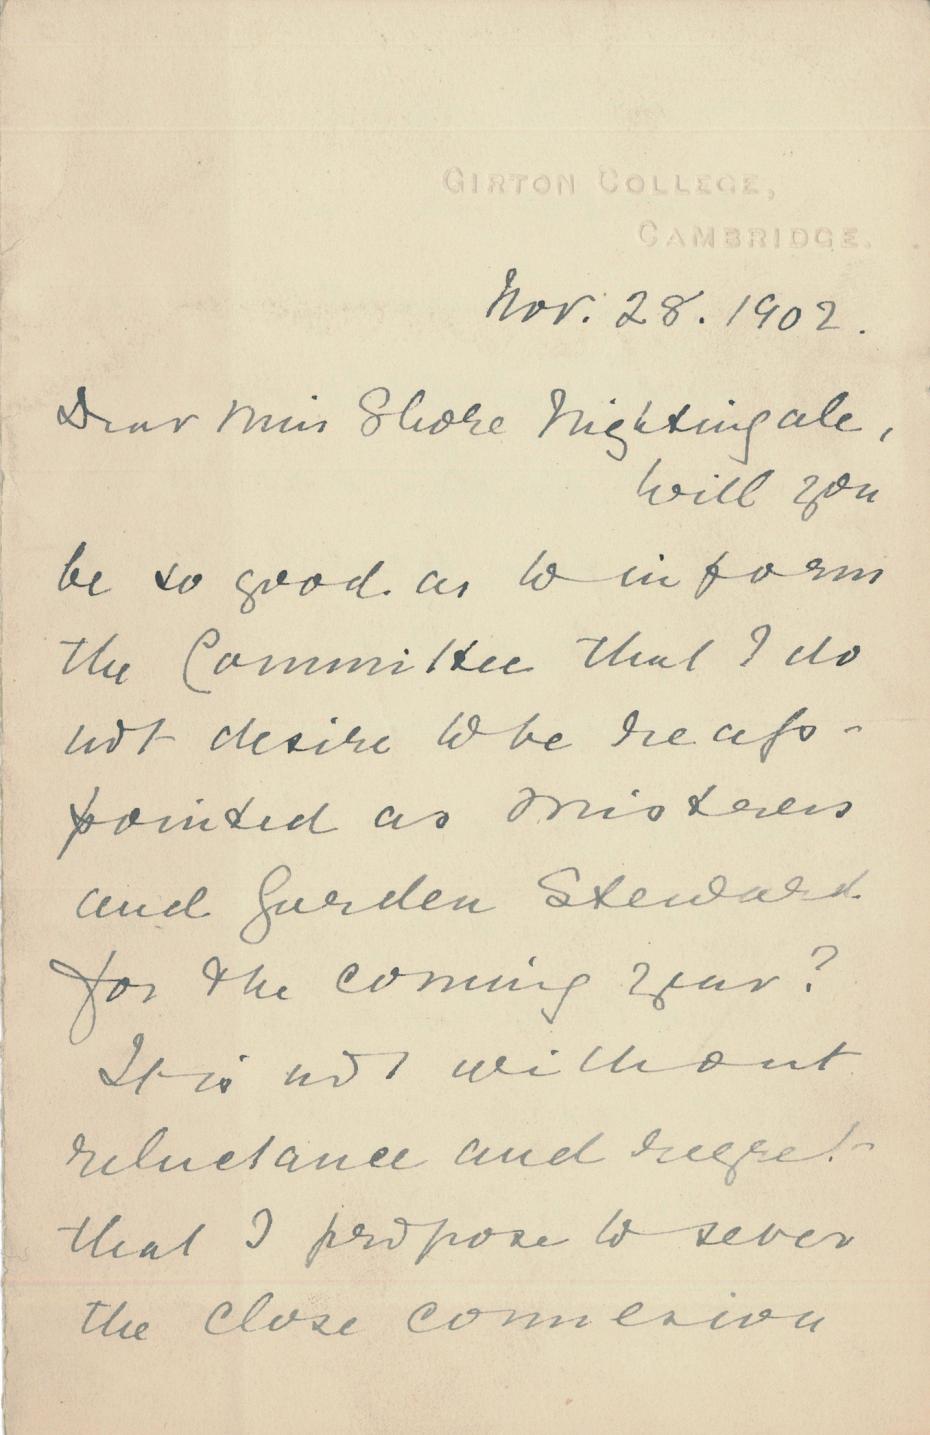 GIRTON COLLEGE,
CAMBRIDGE.
Nov. 28. 1902.
Dear Miss Shore Nightingale,
Will you
be so good as to inform
the Committee that I do
not desire to be reap-
pointed as Mistress
and Garden Steward
for the coming year?
It is not without
reluctance and regret
that I propose to sever
the close connexion